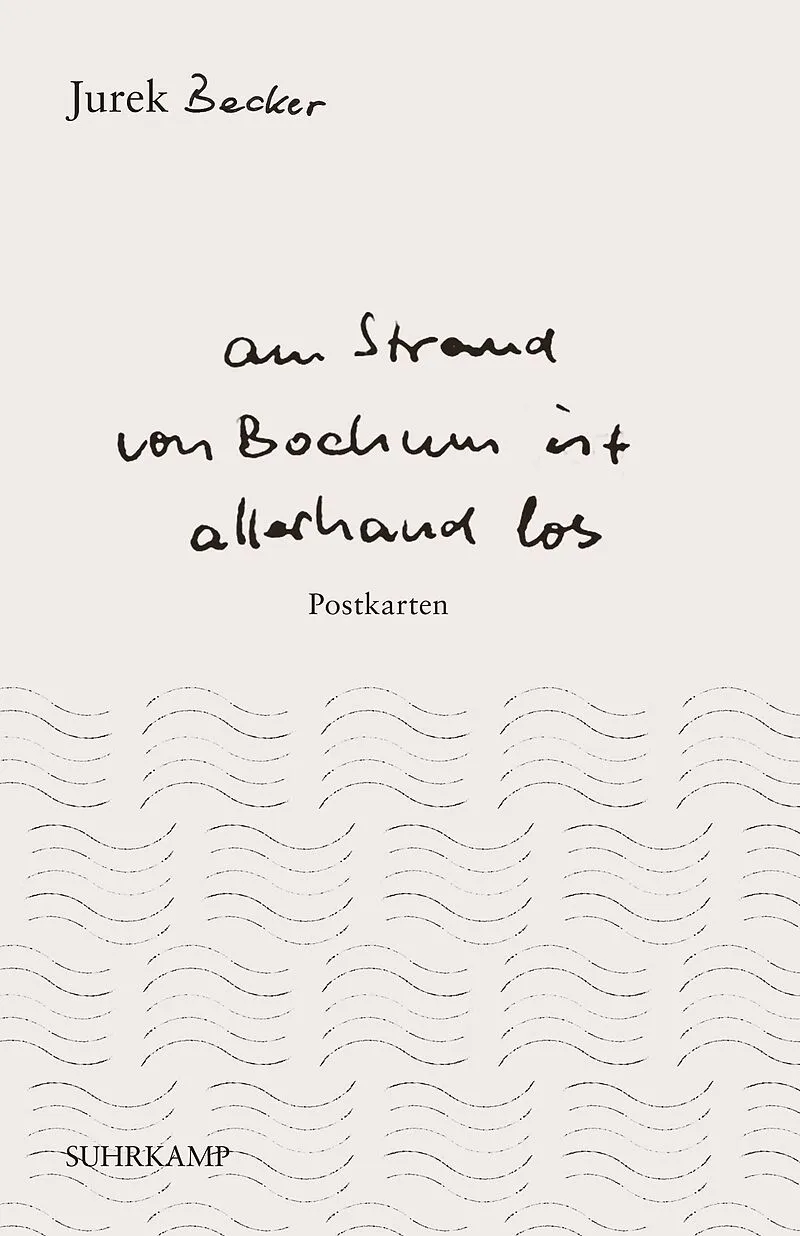 Jurek Becker
am Strand
von Bochum ist
allerhand los
Postkarten
SUHRKAMP